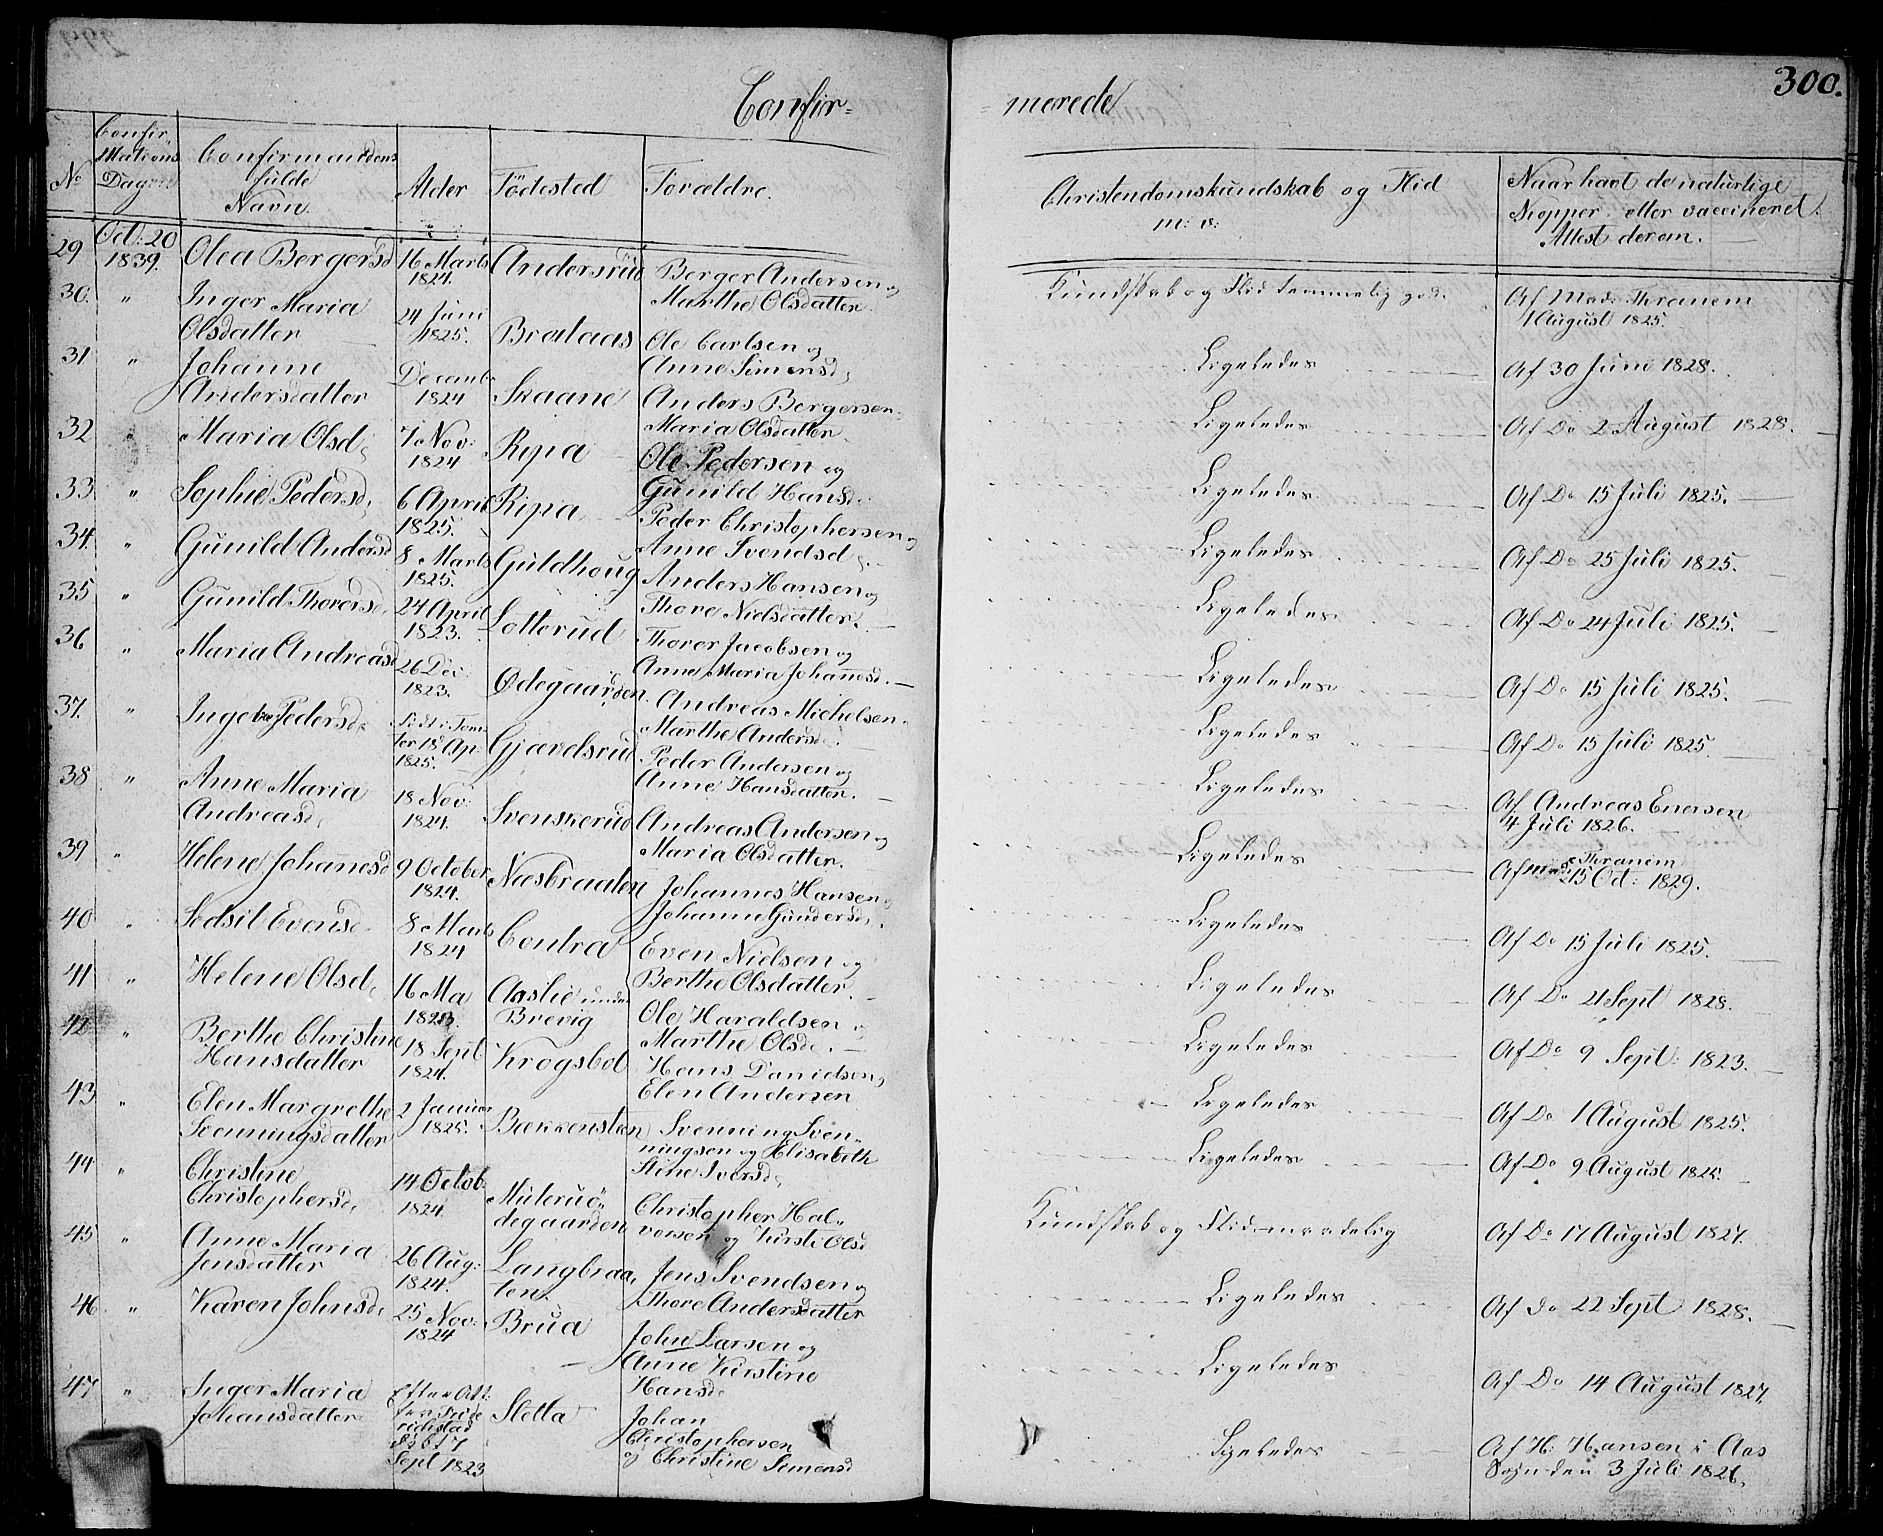 Confir=
=merede
300.
No
Confir
Mations
Dagen
Confirmandens
fulde
Navn.
Alder
Födested
Forældre.
Christendomskundskab og Flid
m: v:
Naar havt de naturlige
Kopper eller vaccineret.
Attest derom.
29 Oct: 20 1839. Olea Bergersd 16 Marts 1824. Andersrud Berger Andersen og Marthe Olsdatter. Kundskab og Flid temmelig god. Af Mad: Thranem 1 August 1825.
30. " Inger Maria Olsdatter 24 Juni 1825. Brataas Ole Carlsen og Anne Simensd, Ligeledes Af 30 Juni 1828.
31 " Johanne Andersdatter Decemb 1824 Skaane Anders Bergersen Maria Olsdatter. Ligeledes Af Do 2 August 1828.
32 " Maria Olsd, 7 Nov: 1824 Ripa Ole Pedersen og Gunild Hansd. Ligeledes Af Do 15 Juli 1825.
33 " Sophie Pedersd, 6 April 1825. Ripa Peder Christophersen og Anne Svendsd, Ligeledes Af Do 25 Juli 1825.
34. " Gunild Andersd 8 Marts 1825. Guldhoug Anders Hansen og Thore Nielsdatter. Ligeledes Af Do 24 Juli 1825.
35 " Gunild Thorersd, 24 April 1823. Lotterud Thorer Jacobsen og Anne Maria Johanesd. Ligeledes Af Do 15 Juli 1825.
36 " Maria Andreasd 26 Dec 1823. Ödegaarden Andreas Michelsen Marthe Andersd. Ligeledes Af Do 15 Juli 1825.
37. " Ingebor Pedersd, 18 Ap: 1825. Gjævelsrud Peder Andersen og Anne Hansdatter. Ligeledes Af Andreas Enersen 4 Juli 1826.
38 " Anne Maria Andreasd, 18 Nov: 1824. Svenskerud Andreas Andersen og Maria Olsdatter. Ligeledes Af Mad Thranem 15 Oct: 1829.
39 " Helene Johanesd 9 October 1824. Næsbraaten Johannes Hansen og Johanne Gundersd, Ligeledes Af Do 15 Juli 1825.
40 " Sidsil Evensd. 8 Marts 1824 Contra Even Nielsen og Berthe Olsdatter. Ligeledes Af Do 21 Sept 1828.
41 " Helene Olsd, 16 Ma 1823. Aaslie under Brevig Ole Haraldsen og Marthe Olsd. Ligeledes Af Do 9 Sept: 1823.
42 " Berthe Christine Hansdatter 18 Sept 1824. Krogsböl Hans Danielsen og Elen Andersen Ligeledes Af Do 1 August 1825.
43 " Elen Margrethe Svenningsdatter 2 Januar 1825. Bækkensten Svenning Sven- ningsen og Elisabeth Stine Iversd, Ligeledes Af Do 9 August 1825.
44 " Christine Christophersd, 14 Octob: 1824. Muleruö degaarden Christopher Hal- vorsen og Kirsti Olsd Kundskab og Flid maadelig Af Do 17 August 1827.
45 " Anne Maria Jensdatter 26 Aug: 1824. Langbraa, ten. Jens Svendsen og Thore Andersdatter Ligeledes Af Do 22 Sept 1828.
46 " Karen Johnsd, 25 Nov: 1824 Brua John Larsen og Anne Kirstine Hansd. Ligeledes Af Do 14 August 1827.
47 " Inger Maria Johansdatter Efter Att: fra Frede rickstad Född 7 Sept 1823 Sletta Johan Christophersen og Christine Simensd Ligeledes Af H: Hansen i Aas Sogn den 3 Juli 1826.